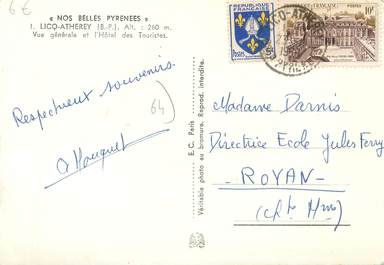 6€
« NOS BELLES PYRENEES »
1. LICQ-ATHEREY (B.-P.), Alt. : 260 m.
Vue générale et l'Hôtel des Touristes.
Respectueux souvenirs
64
E. C. Paris
Véritable photo au bromure. Reprod. interdite.
REPUBLIQUE FRANÇAISE
POSTES
10F
LICQ-ATHEREY
Madame Darnis
Directrice Ecole Jules Ferry
ROYAN
(Chte Mme)